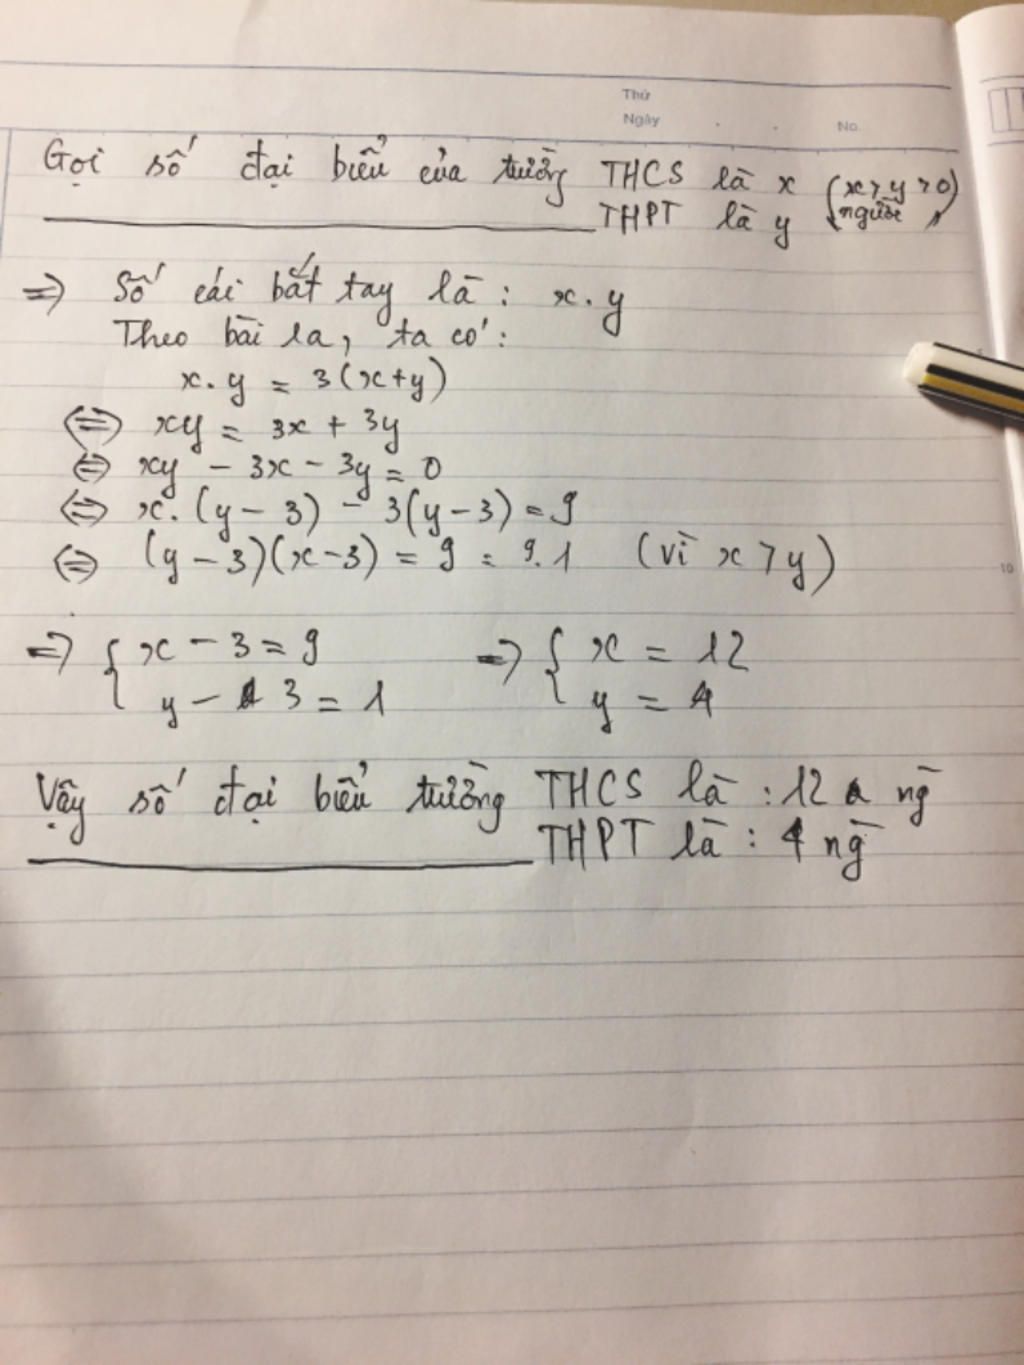 Thứ
Ngày . . No.
Gọi số đại biểu của trường THCS là x (x > y > 0)
THPT là y người
=> Số cái bắt tay là : x . y
Theo bài ra, ta có :
x . y = 3(x+y)
<=> xy = 3x + 3y
<=> xy - 3x - 3y = 0
<=> x . (y - 3) - 3(y - 3) = 9
<=> (y - 3)(x - 3) = 9 = 9.1 (vì x > y)
10
=> { x - 3 = 9 => { x = 12
y - 3 = 1 y = 4
Vậy số đại biểu trường THCS là : 12 ng
THPT là : 4 ng